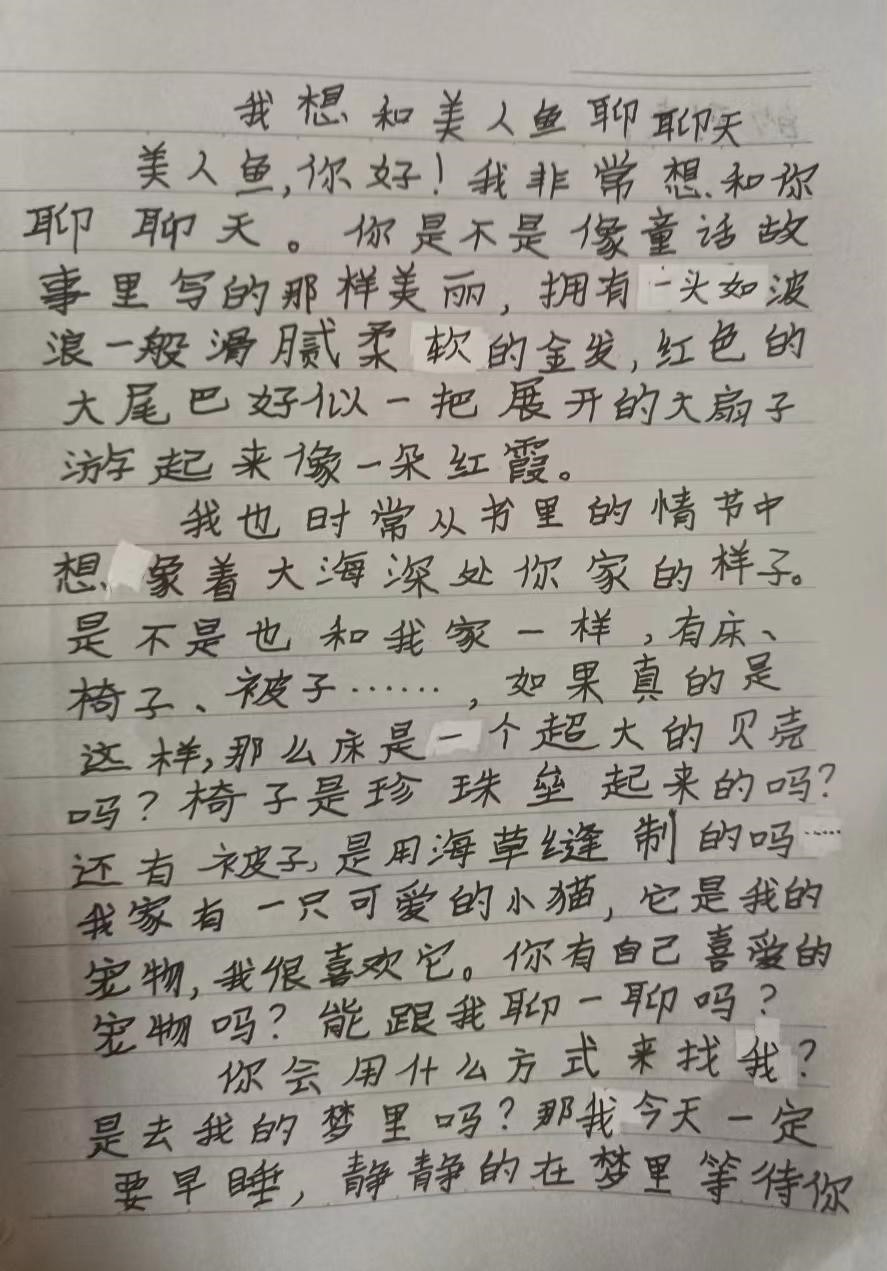 我想和美人鱼聊聊天
美人鱼,你好!我非常想和你
聊聊天。你是不是像童话故
事里写的那样美丽,拥有一头如波
浪一般滑腻柔软的金发,红色的
大尾巴好似一把展开的大扇子
游起来像一朵红霞。
我也时常从书里的情节中
想象着大海深处你家的样子。
是不是也和我家一样,有床、
椅子、被子……,如果真的是
这样,那么床是一个超大的贝壳
吗?椅子是珍珠垒起来的吗?
还有被子,是用海草缝制的吗……
我家有一只可爱的小猫,它是我的
宠物,我很喜欢它。你有自己喜爱的
宠物吗?能跟我聊一聊吗?
你会用什么方式来找我?
是去我的梦里吗?那我今天一定
要早睡,静静的在梦里等待你